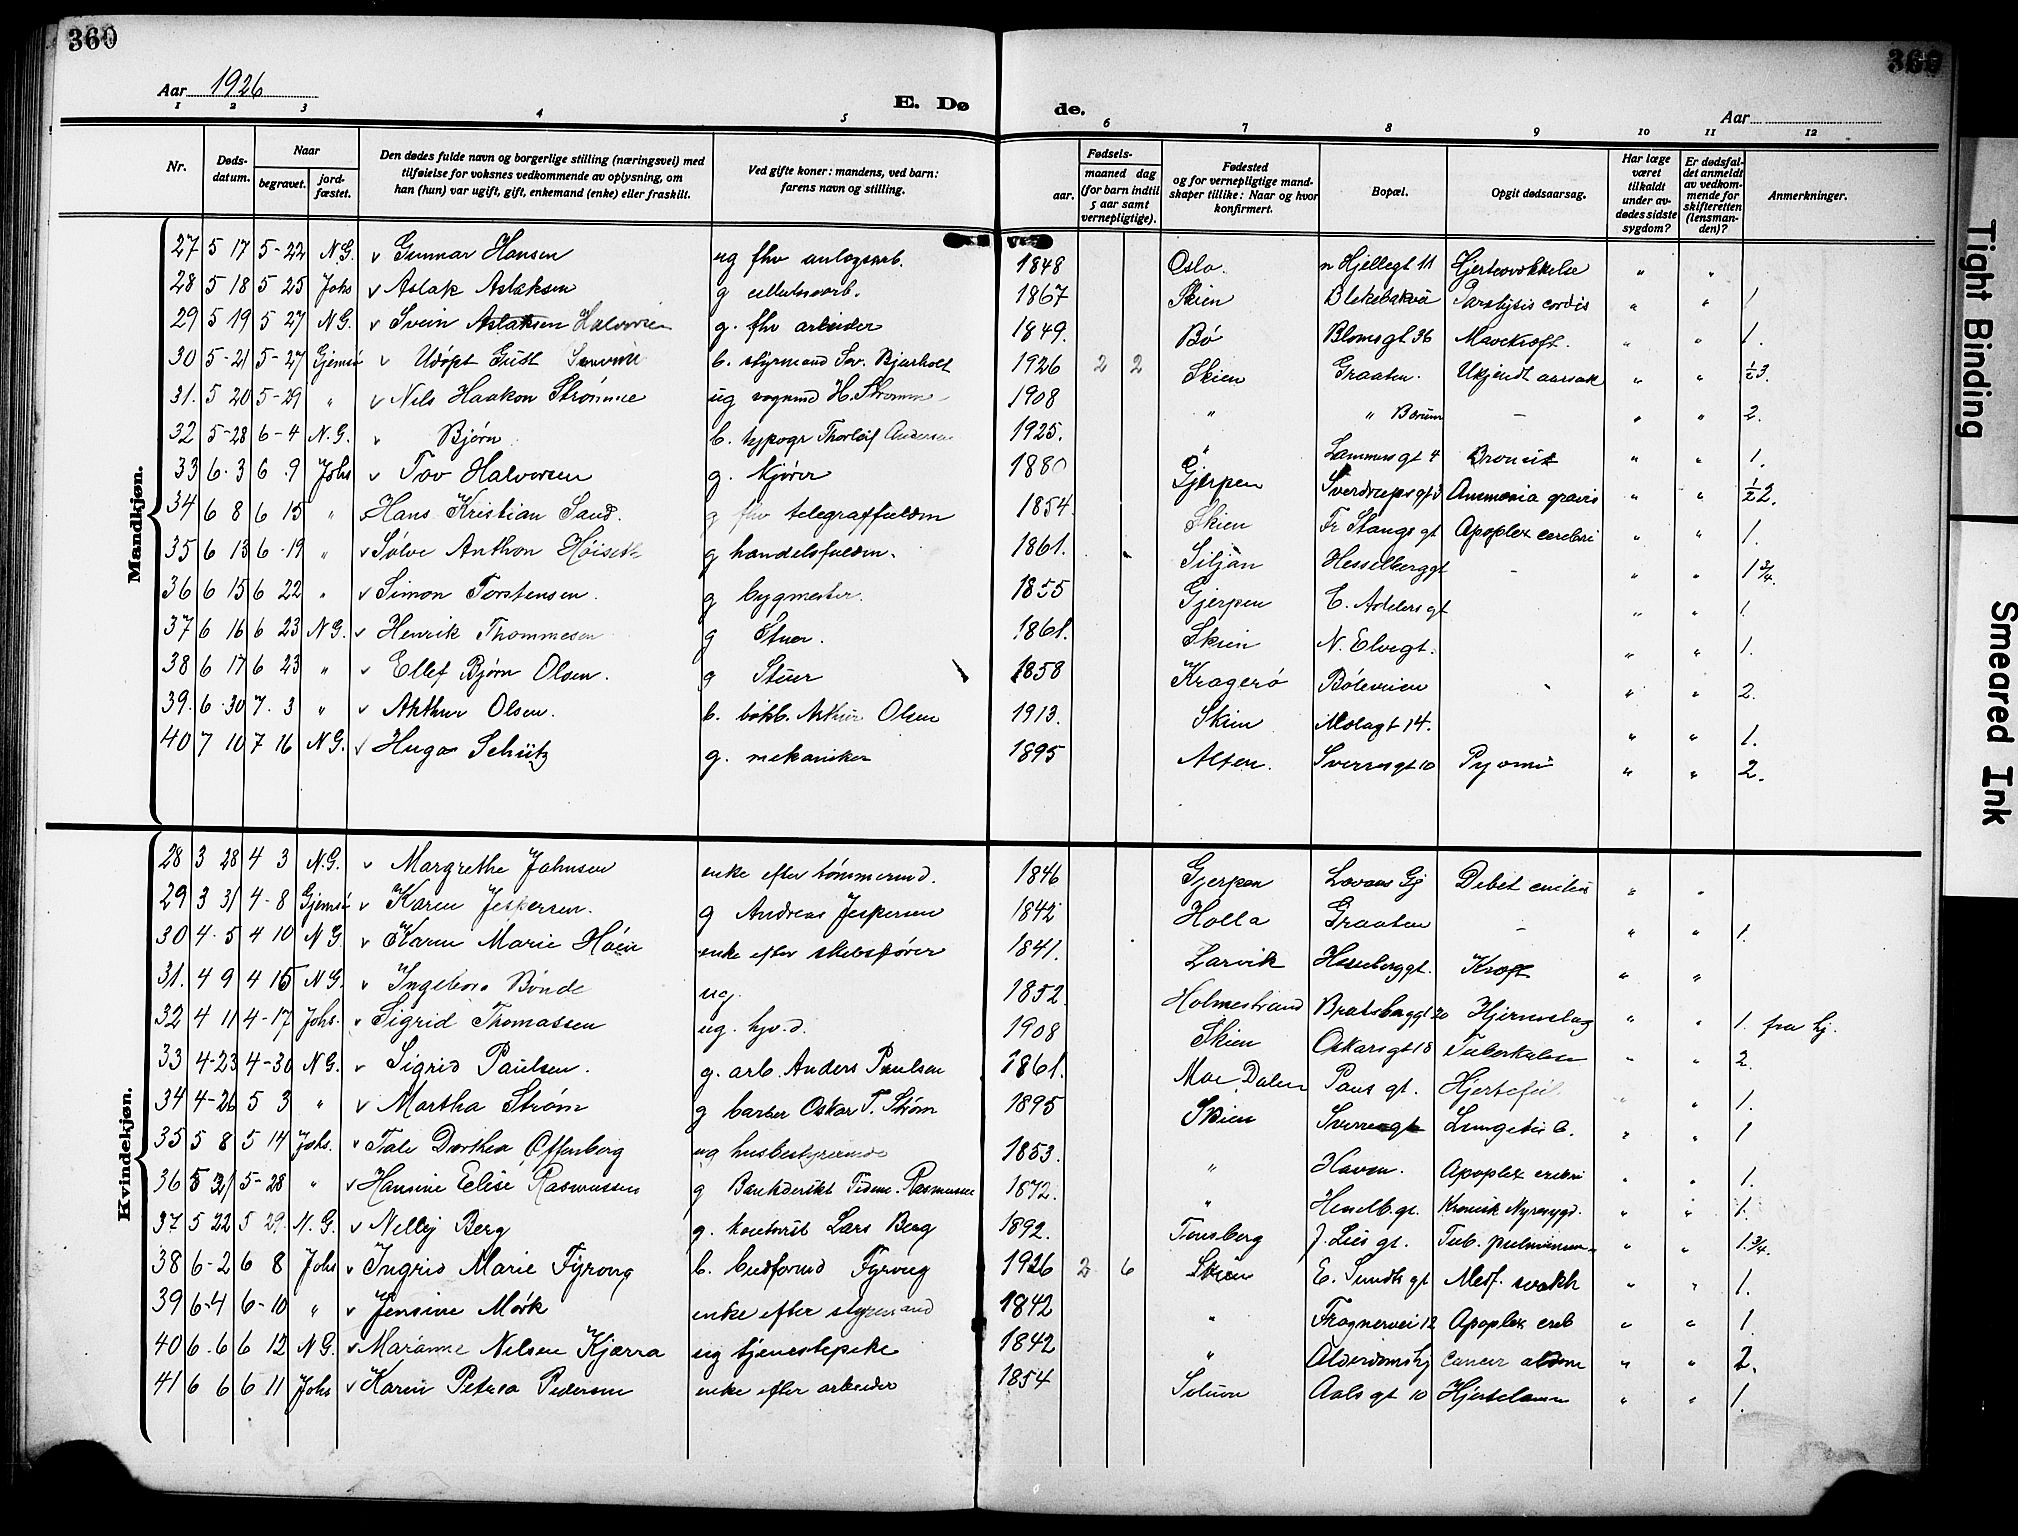 360
360
Aar 1926
E. Dø de.
Aar
1 2 3 4 5 6 7 8 9 10 11 12
Nr.
Døds-datum.
Naar
begravet.
jord-fæstet.
Den dødes fulde navn og borgerlige stilling (næringsvei) med tilføielse for voksnes vedkommende av oplysning, om han (hun) var ugift, gift, enkemand (enke) eller fraskilt.
Ved gifte koner: mandens, ved barn: farens navn og stilling.
Fødsels-
aar.
maaned dag (for barn indtil 5 aar samt vernepligtige).
Fødested og for vernepligtige mandskaper tillike: Naar og hvor konfirmert.
Bopæl.
Opgit dødsaarsag.
Har læge været tilkaldt under avdødes sidste sygdom?
Er dødsfaldet anmeldt av vedkommende for skifteretten (lensmanden)?
Anmerkninger.
Mandkjøn.
27 5 17 5-22 N.G. v Gunnar Hansen ug fhv anlægsarb. 1848 Oslo. n Hjellegt 11 " "
28 5 18 5 25 Johs v Aslak Aslaksen g cellulosearb. 1867 Skien Paralysis cordis " " 1
29 5 19 5 27 N.G. v Svein Aslaksen Halvorsen g. fhv arbeider 1849. Bø Blomsgt 36 Mavekræft. " " 1.
30 5-21 5-27 Gjemsø v Udøpt Gutt b. styrmand Sev. Bjerholt 1926 2 2 Skien Graaten. Ukjendt aarsak " " ½3.
31. 5 20 5-29 " v Nils Haakon Strømme ug vognmd H. Strømme 1908 " " Bærum - " " 2.
32 5-28 6-4 N.G. v Bjørn b. typogr Thorleif Andersen 1925. " Lammersgt 4 " " 1.
33 6.3 6 9 Johs v Tov Halvorsen g. kjører 1880 Gjerpen Sverdrupsgt 3 gravis " " ½2.
34 6 8 6 15 " Hans Kristian Sand. g fhv telegraffuldm 1854. Skien Fr Stangs gt Apoplex cerebri " " 1.
35 6 13 6-19 " v Sølve Anthon Høiseth g handelsfuldm. 1861. Siljan Hesselberggt - " " 1 ¾.
36 6 15 6 22 " v Simon Torstensen. g bygmester. 1855 Gjerpen C. Adelersgt " " 1.
37 6 16 6 23 N.G. v Henrik Thommesen g Stuer. 1861. Skien N. Elvegt. " " 1.
38 6 17 6 23 " v Ellef Bjørn Olsen. g Stuer 1858 Kragerø Bøleveien " " 2.
39. 6-30 7.3 " v Arthur Olsen. b. bokb. Arthur Olsen 1913. Skien Molagt 14. " " 1.
40 7 10 7 16 N.G. v Hugo Schütz g. mekaniker 1895 Alten. Sverresgt 10 Pyomi " " 2.
Kvindekjøn.
28 3 28 4 3 N.G. v Margrethe Johnsen enke efter tømmermd. 1846 Gjerpen " "
29 3 31 4-8 Gjemsø v Karen Jespersen. g Andreas Jespersen 1842 Holla Graaten - " " 1.
30 4.5 4 10 N G. v Karen Marie Høin enke efter skibsfører 1841. Larvik Hesselberggt. Kræft " "
31. 4 9 4 15 N G. v Ingeborg Bonde ug. 1852. Holmestrand Bratsberggt 20 Hjerneslag " " 1. fra hj.
32 4 11 4-17 Johs. v Sigrid Thomassen ug. hjv.d. 1908 Skien Oskarsgt 18 Tuberkulose " " 2.
33 4-23 4-30 N G. v Sigrid Paulsen. g. arb. Anders Paulsen 1861. Moe, Dalen Paus gt. Hjertefeil " " 1.
34 4-26 5 3 " v Martha Strøm g barber Oskar T. Strøm 1895 Skien Sverresgt Lungetub. " " 1
35 5 8 5 14 Johs. v Tale Dorthea Offenberg ug husbestyrerinde 1853. " Haven. Apoplex cerebri " " 1.
36 5 21 5-28 " v Hansine Elise Rasmussen g Bankdirekt Tidem. Rasmussen 1872. " Hesselb.gt. Kronisk Nyresygd. " " 1.
37 5 22 5 29. N.G. v Nelly Berg g. kontorist Lars Berg 1892. Tønsberg J. Lies gt. Tub. pulmonum " " 1.¾.
38 6-2 6 8 Johs v Ingrid Marie Fyrveg b. budformd Fyrveg 1926 2 6 Skien E. Sundts gt Medf. svakh " " 1.
39 6-4 6-10 " v Jensine Mørk enke efter styrmand 1842 " Frognervei 12 Apoplex cereb " " 1.
40 6.6 6 12 N G. v Marianne Nilsen Kjærra ug tjenestepike 1842 " Alderdomshj Cancer abdom " " 2.
41 6 6 6 11 Johs v Karen Petrea Pedersen enke efter arbeider 1854 Solum Aals gt 10 Hjertelam " " 1.
Tight Binding
Smeared Ink